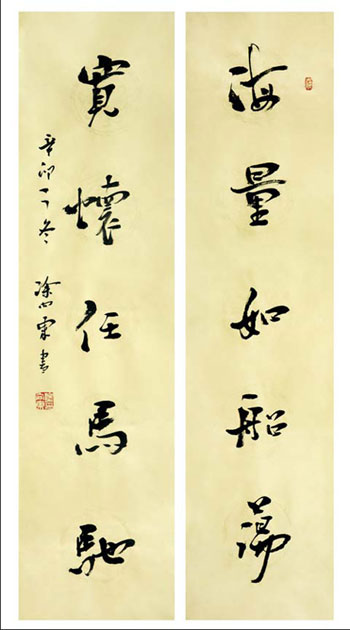 海量如船蕩
寬懷任馬馳
辛卯冬
書